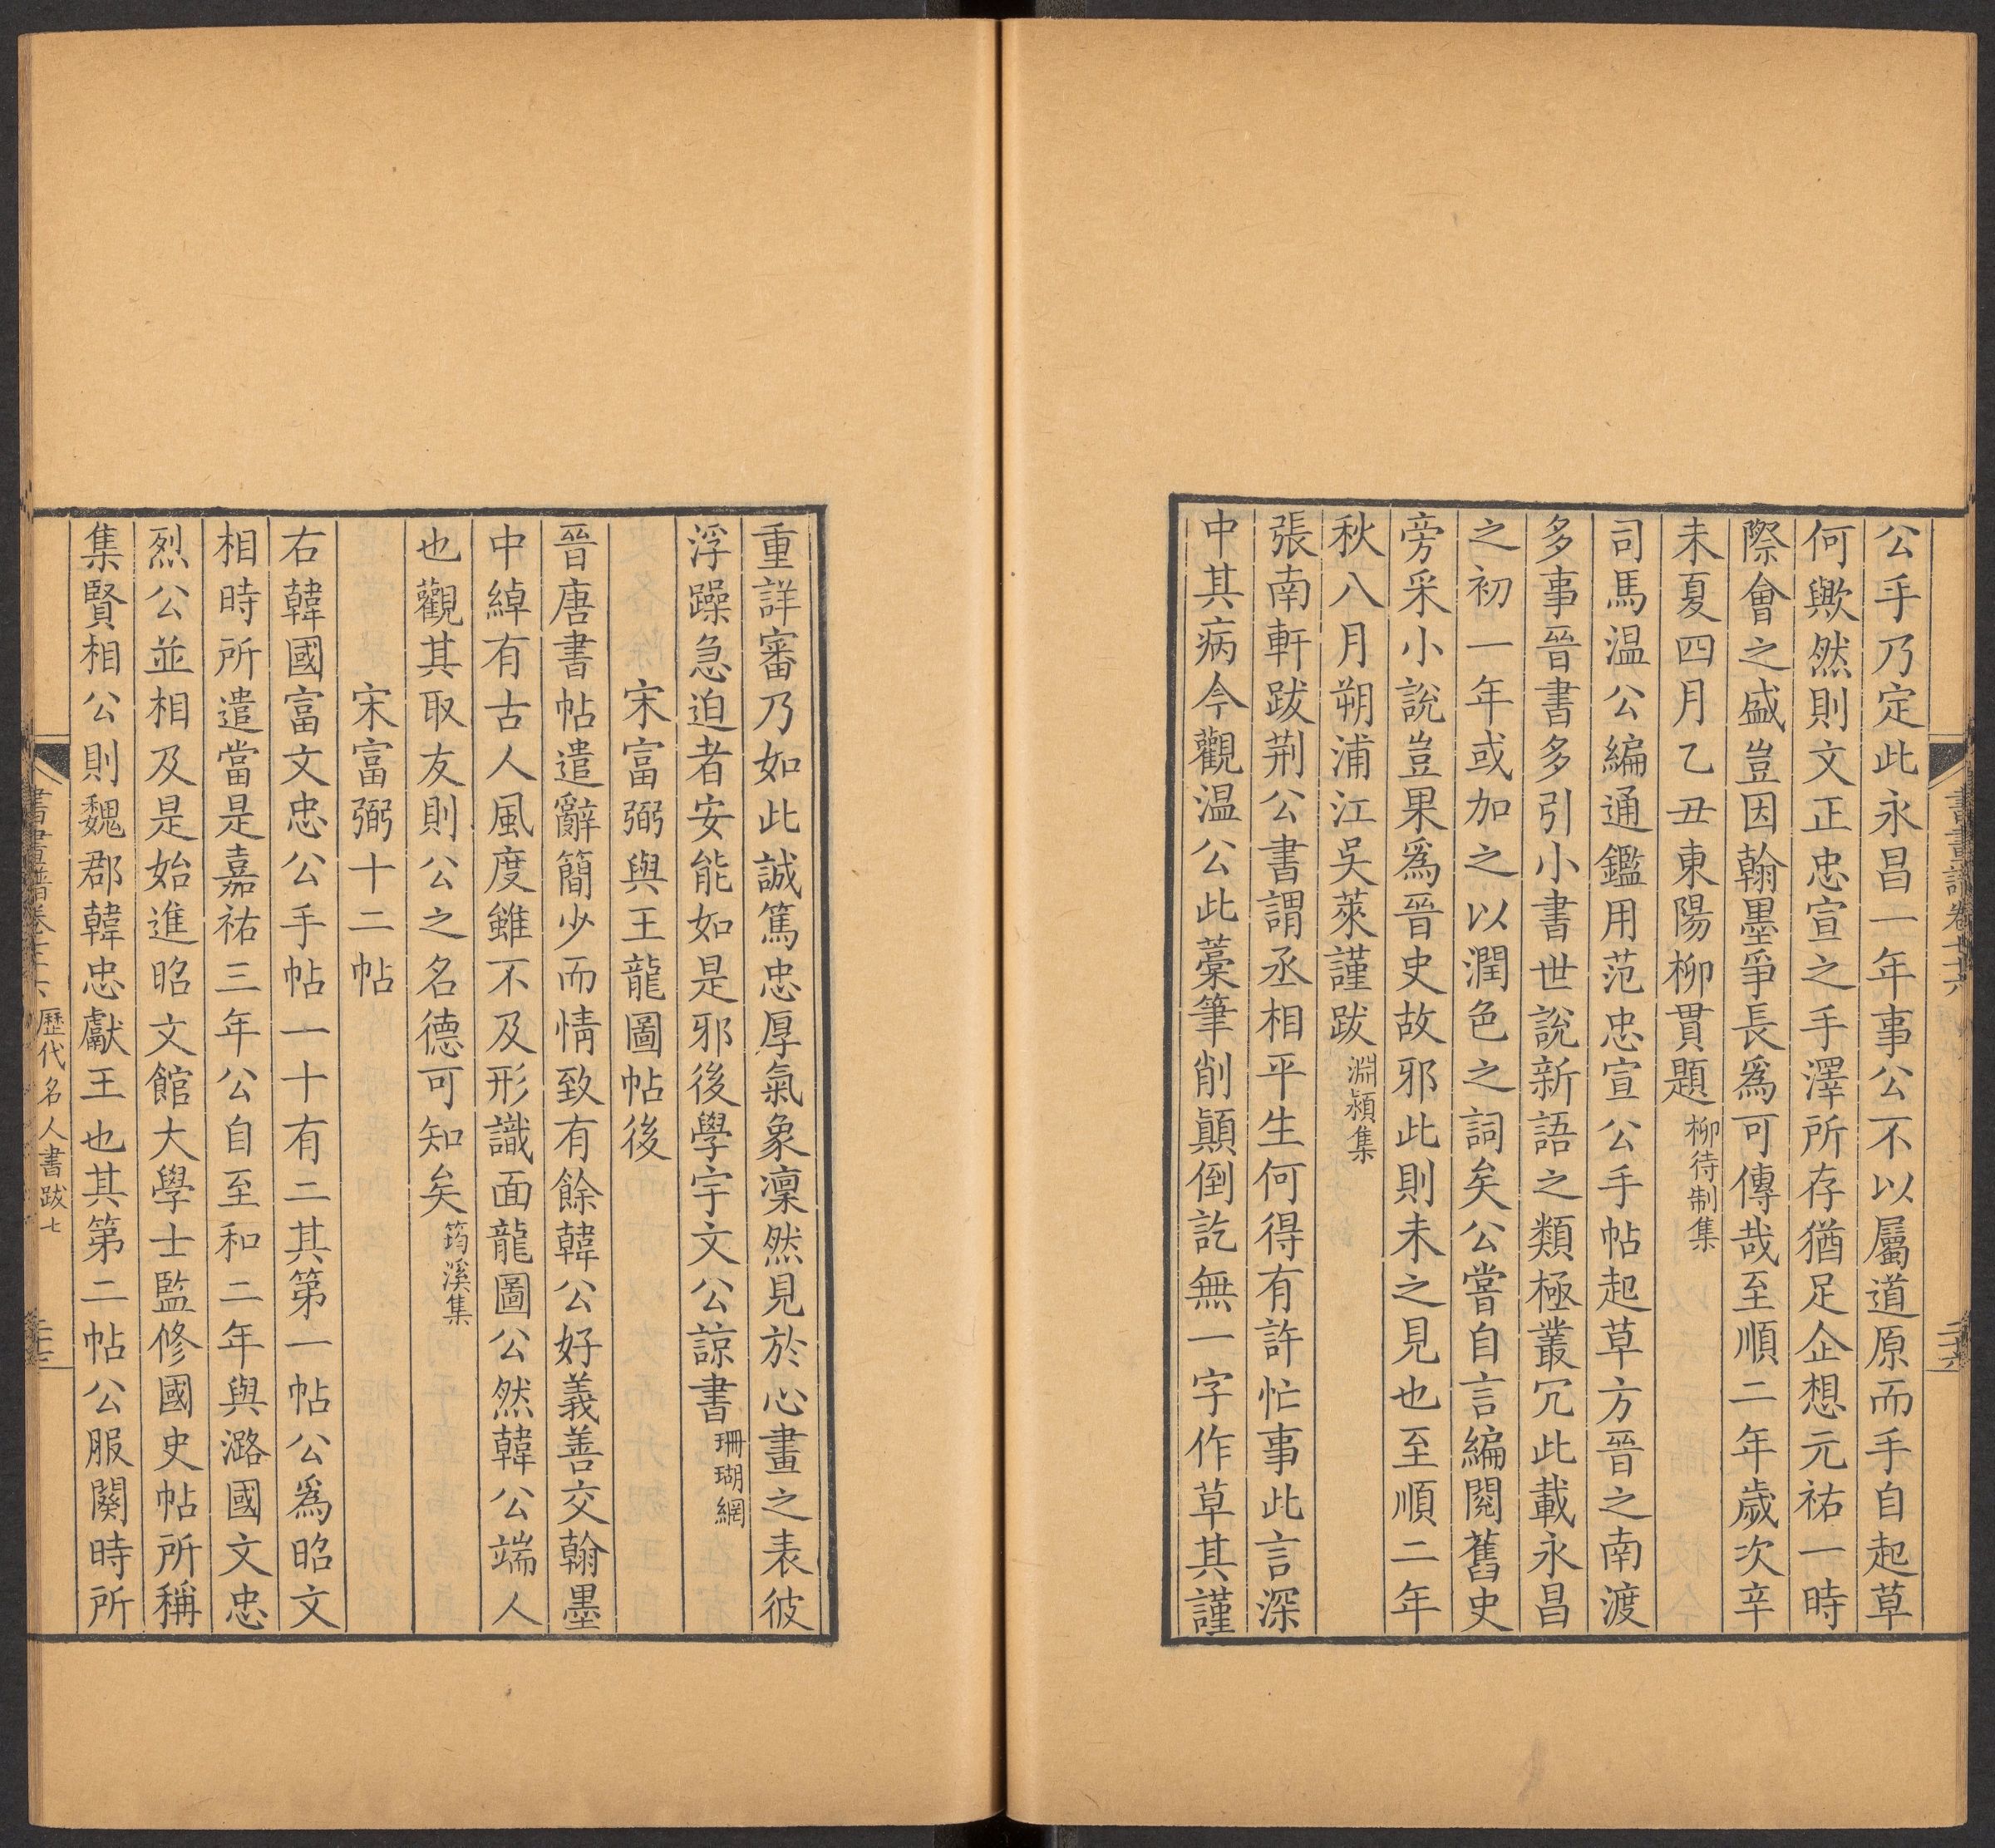 公乎乃定此永昌一年事公不以屬道原而手自起草
何歟然則文正忠宣之手澤所存猶足企想元祐一時
際會之盛豈因翰墨爭長爲可傳哉至順二年歲次辛
未夏四月乙丑東陽柳貫題柳待制集
司馬温公編通鑑用范忠宣公手帖起草方晉之南渡
多事晉書多引小書世說新語之類極叢冗此載永昌
之初一年或加之以潤色之詞矣公嘗自言編閱舊史
旁采小說豈果爲晉史故邪此則未之見也至順二年
秋八月朔浦江吳萊謹跋淵穎集
張南軒跋荆公書謂丞相平生何得有許忙事此言深
中其病今觀温公此藁筆削顚倒訖無一字作草其謹
重詳審乃如此誠篤忠厚氣象凜然見於心畫之表彼
浮躁急迫者安能如是邪後學宇文公諒書珊瑚網
宋富弼與王龍圖帖後
晉唐書帖遣辭簡少而情致有餘韓公好義善交翰墨
中綽有古人風度雖不及形識面龍圖公然韓公端人
也觀其取友則公之名德可知矣筠溪集
宋富弼十二帖
右韓國富文忠公手帖一十有二其第一帖公爲昭文
相時所遣當是嘉祐三年公自至和二年與潞國文忠
烈公並相及是始進昭文館大學士監修國史帖所稱
集賢相公則魏郡韓忠獻王也其第二帖公服闋時所
歷代名人書跋七